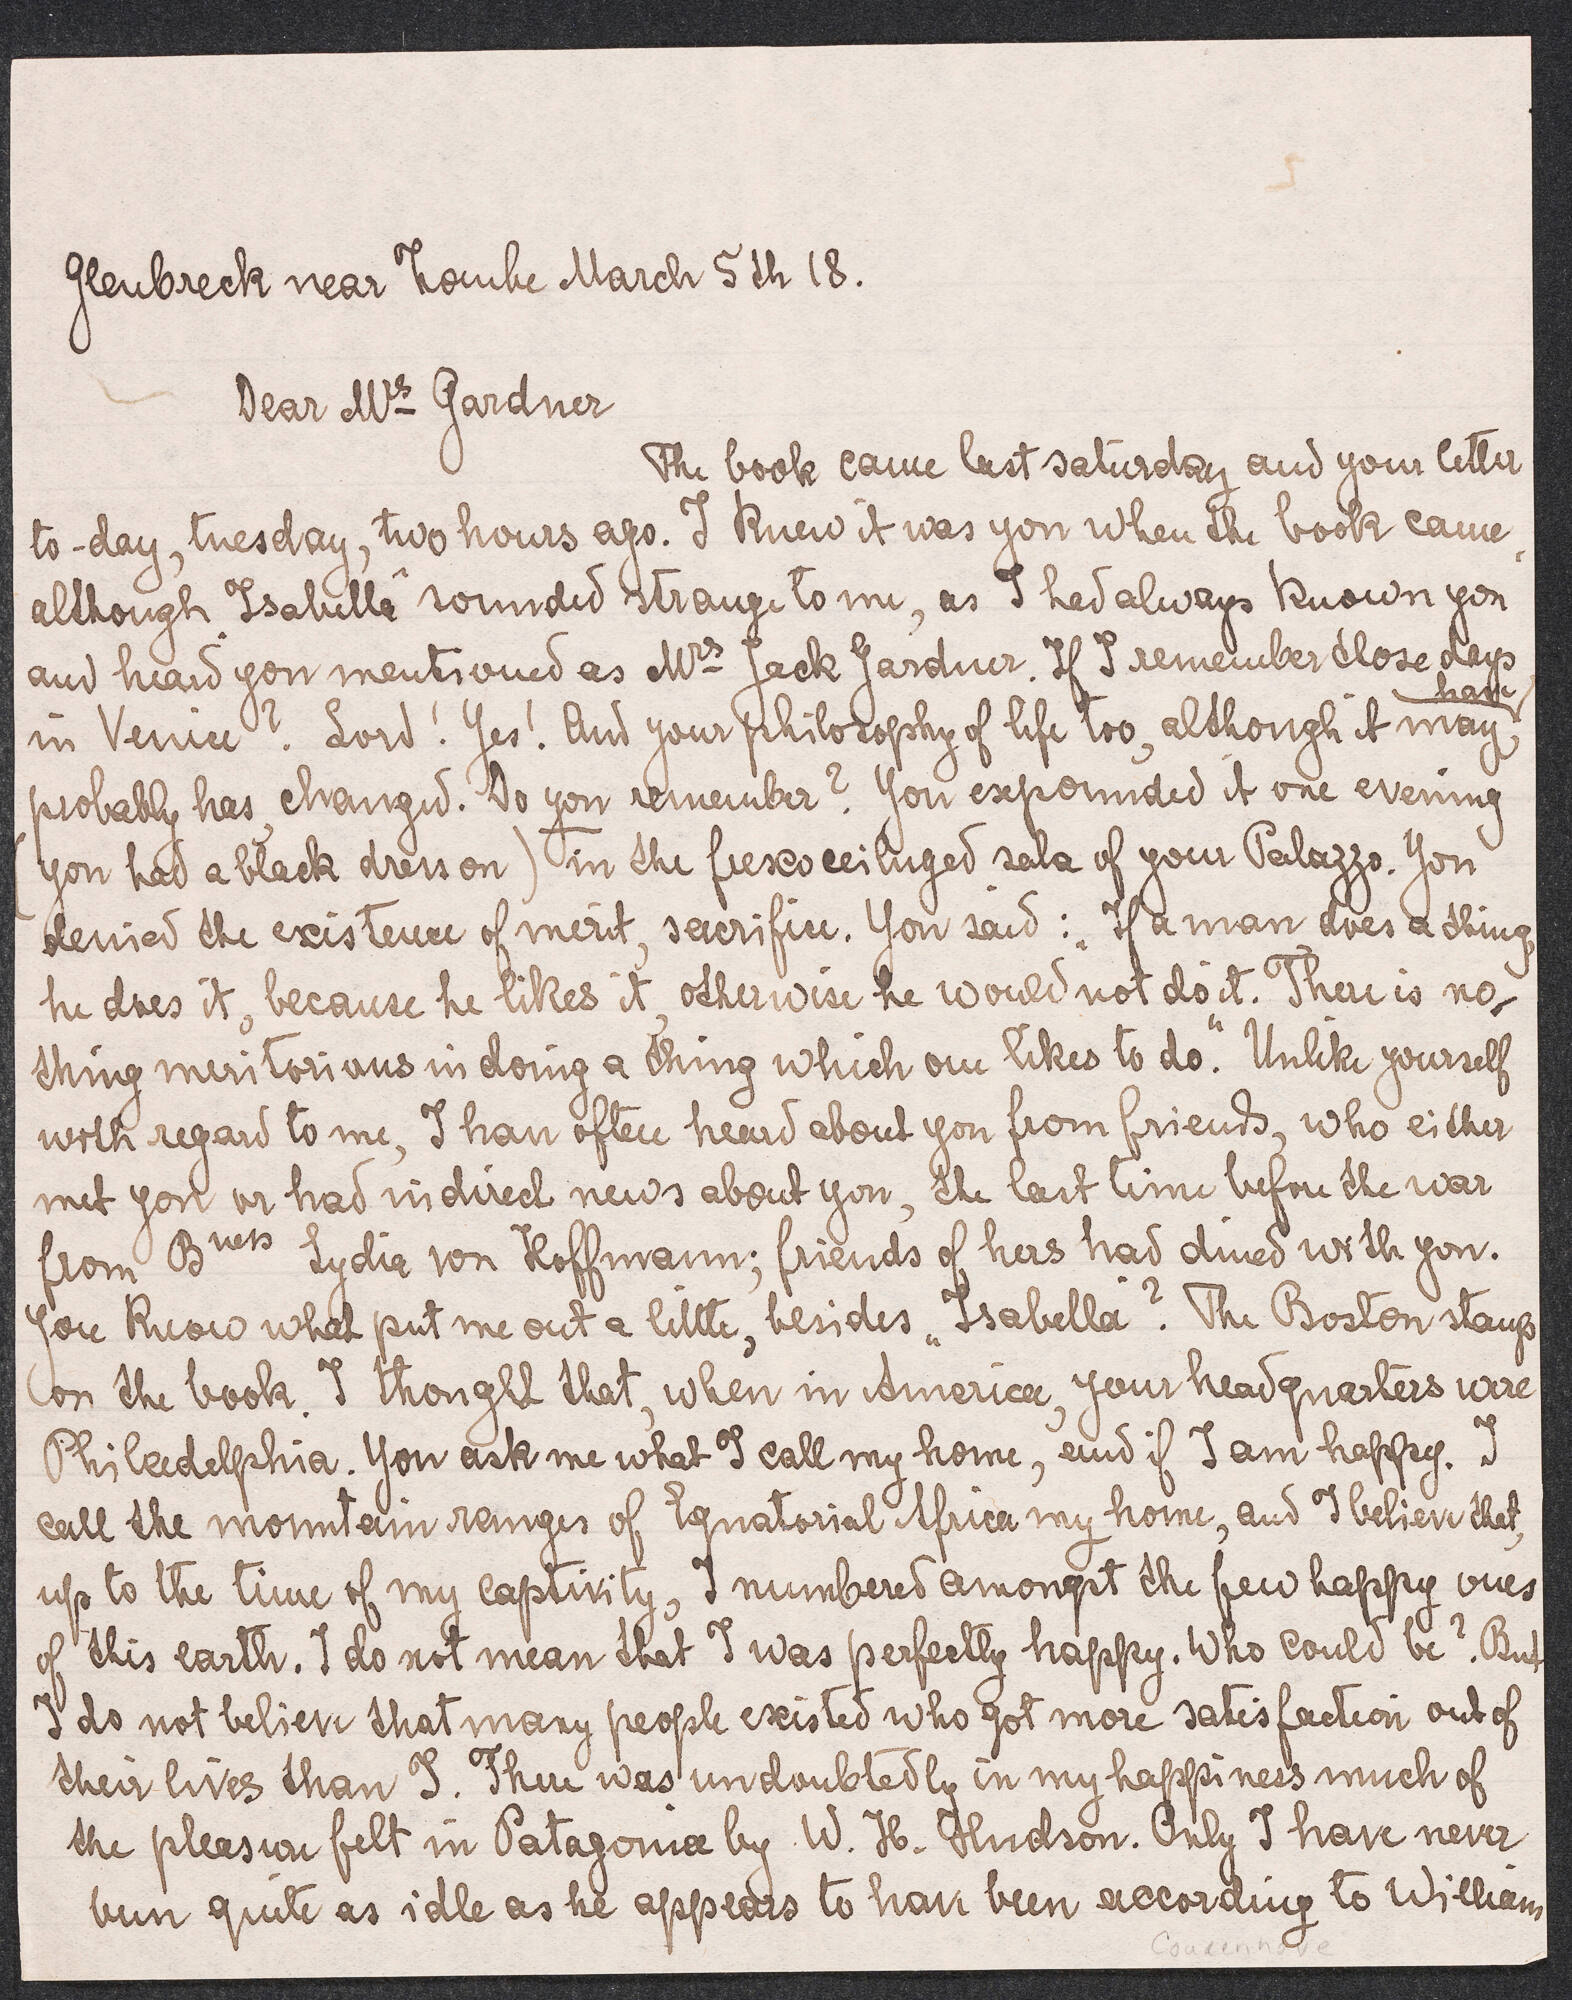 Glenbreck near Zombe March 5th 18.
Dear Mrs Gardner
The book came last saturday and your letter
to-day, tuesday, two hours ago. I knew it was you when the book came,
although „Isabella“ sounded strange to me, as I had always known you
and heard you mentioned as Mrs Jack Gardner. If I remember those days
have
in Venice? Lord! Yes! And your philosophy of life too, although it may,
probably has, changed. Do you remember? You expounded it one evening
(you had a black dress on) in the frescoceilinged sala of your Palazzo. You
denied the existence of merit, sacrifice. You said: „If a man does a thing,
he does it, because he likes it, otherwise he would not do it. There is no-
thing meritorious in doing a thing which one likes to do.“ Unlike yourself
with regard to me, I have often heard about you from friends, who either
met you or had indirect news about you, the last time before the war
from Bness Lydia von Hoffmann; friends of hers had dined with you.
You know what put me out a little, besides „Isabella“? The Boston stamps
on the book. I thought that, when in America, your headquarters were
Philadelphia. You ask me what I call my home, and if I am happy. I
call the mountain ranges of Equatorial Africa my home, and I believe that,
up to the time of my captivity, I numbered amongst the few happy ones
of this earth. I do not mean that I was perfectly happy. Who could be? But
I do not believe that many people existed who got more satisfaction out of
their lives than I. There was undoubtedly in my happiness much of
the pleasure felt in Patagonia by W. H. Hudson. Only I have never
been quite as idle as he appears to have been according to William
Coudenhove